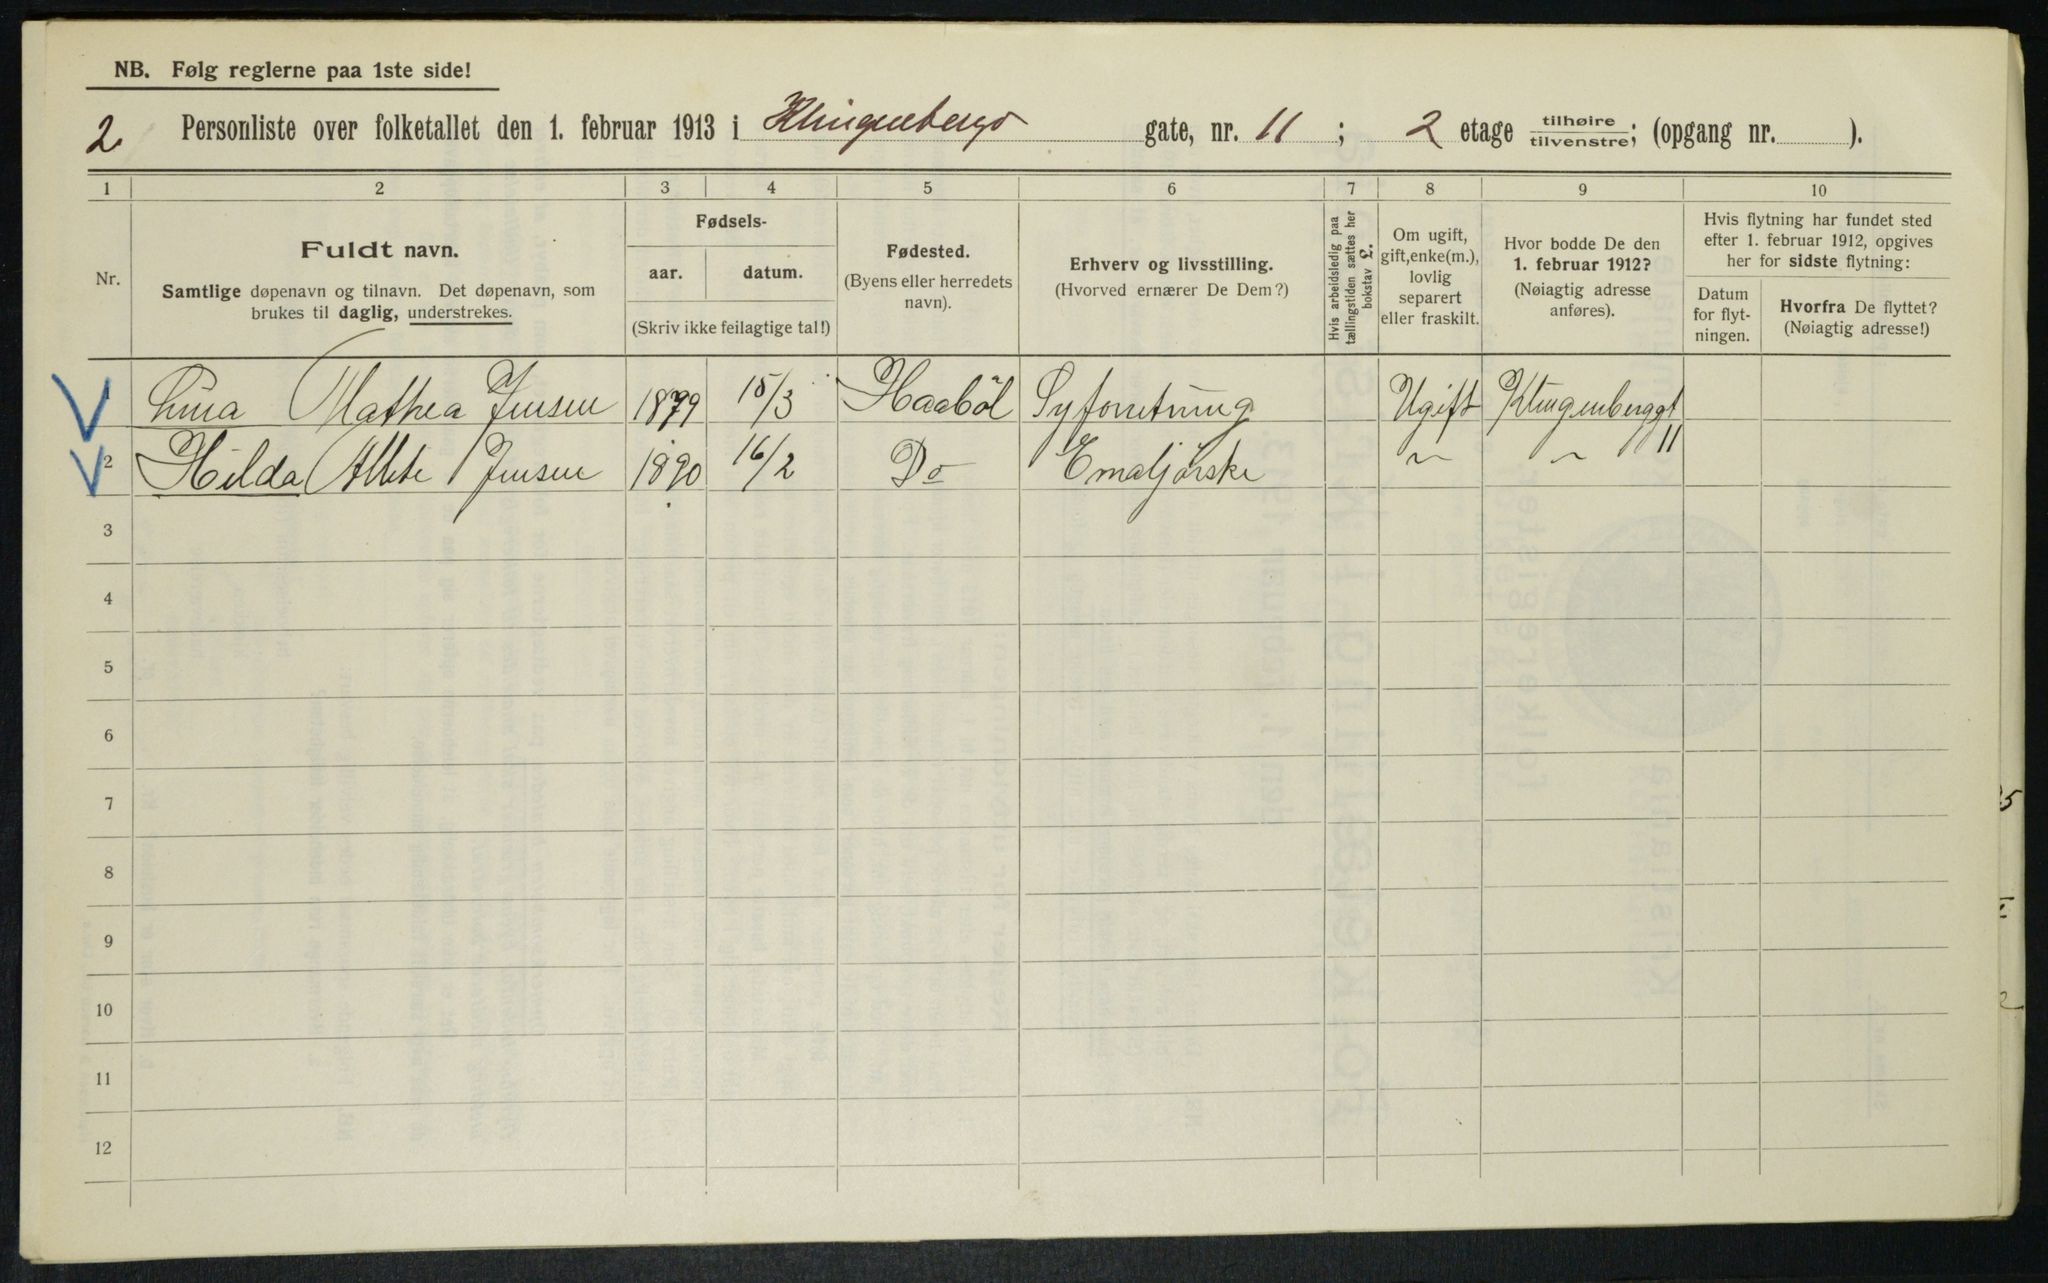 NB. Følg reglerne paa 1ste side!
2 Personliste over folketallet den 1. februar 1913 i Klingenbergs gate, nr. 11; 2 etage tilhøire/tilvenstre; (opgang nr. ).
1 2 3 4 5 6 7 8 9 10
Nr.
Fuldt navn.
Samtlige døpenavn og tilnavn. Det døpenavn, som
brukes til daglig, understrekes.
Fødsels-
aar. datum.
(Skriv ikke feilagtige tal!)
Fødested.
(Byens eller herredets
navn).
Erhverv og livsstilling.
(Hvorved ernærer De Dem?)
Hvis arbeidsledig paa
tællingstiden sættes her
bokstav £.
Om ugift,
gift, enke(m.),
lovlig
separert
eller fraskilt.
Hvor bodde De den
1. februar 1912?
(Nøiagtig adresse
anføres).
Hvis flytning har fundet sted
efter 1. februar 1912, opgives
her for sidste flytning:
Datum
for flyt-
ningen.
Hvorfra De flyttet?
(Nøiagtig adresse!)
1 Mathea Jensen 1879 15/3 Haabøl Syforretning Ugift Klingenberggt
11
2 Hilda Jensen 1890 16/2 Do Emaljørske " "
3
4
5
6
7
8
9
10
11
12